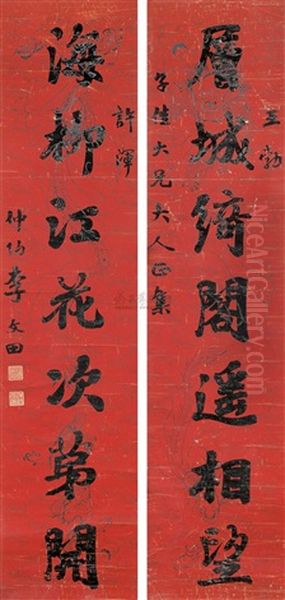 王勃
層城綺閣遥相望
子大兄大人正集
許渾
海柳江花次第開
仲約李文田